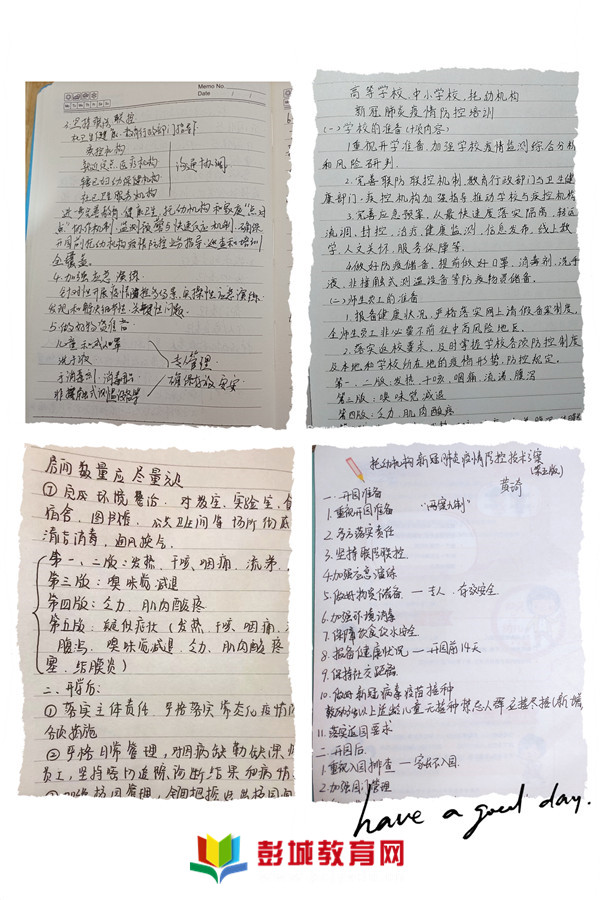 Memo No.
Date
3.坚持联防联控
社卫生健康、教育行政部门指导
疾控机构
就近定点医疗机构
辖区妇幼保健机构
社卫服务机构
沟通协调
进一步完善教育、健康卫生、托幼机构和家庭“点对
点”协作机制、监测预警与快速反应机制,确保
开园前托幼机构疫情防控业务指导、巡查和培训
全覆盖。
4.加强应急演练
针对性开展疫情防控多场景、实操性应急演练
发现和解决细节性、关键性问题
5.做好物资准备
儿童口罩
洗手液
手消毒剂、消毒
非接触式测温设备
专人管理
确保存放安全
高等学校、中小学校、托幼机构
新冠肺炎疫情防控培训
(一)学校的准备(十项内容)
1.重视开学准备,加强学校疫情监测综合分析
和风险研判.
2.完善联防联控机制,教育行政部门与卫生健
康部门、疾控机构加强指导推动学校与疾控机构
3.完善应急预案,从最快速度落实隔离、转运
流调、封控、治疗、健康监测、信息发布、线上教
学、人文关怀、服务保障等.
4.做好防疫储备,提前做好口罩、消毒剂、洗手
液、非接触式测温设备等防疫物资储备.
(二)师生员工的准备
1.报备健康状况,严格落实网上请假备案制度,
全师生员工非必要不前往中高风险地区.
2.落实返校要求,及时掌握学校各项防控制度
及本地和学校所在地的疫情形势、防控规定.
第一、二版:发热、干咳、咽痛、流涕、腹泻
第三版:嗅味觉减退
第四版:乏力、肌肉酸疼
房间数量应尽量
⑦ 环境整治、对教室、实验室、食
宿舍、图书馆、公共卫生间等场所彻底
清洁消毒,通风换气.
第一、二版:发热、干咳、咽痛、流涕、
第三版:嗅味觉减退
第四版:乏力、肌肉酸疼
第五版:疑似症状(发热、干咳、咽痛、
腹泻、嗅味觉减退、乏力、肌肉酸疼
塞、结膜炎)
二、开学后:
①落实主体责任,严格落实常态化疫情防
各项措施
②严格日常管理,对因病缺勤缺课师
员工,坚持密切追踪诊断结果和病情
托幼机构新冠肺炎疫情防控技术方案
(第五版)
黄琦
一.开园准备
1.重视开园准备 “两案九制”
2.多方落实责任
3.坚持联防联控
4.加强应急演练
5.做好物资储备 — 专人 存放安全
6.加强环境消毒
7.保障饮食饮水安全
8.报备健康状况 — 开园前14天
9.保持社交距离
10.做好新冠病毒疫苗接种
11.落实返园要求
二.开园后
1.重视入园排查
2.加强园门管理
have a good day.
彭城教育网